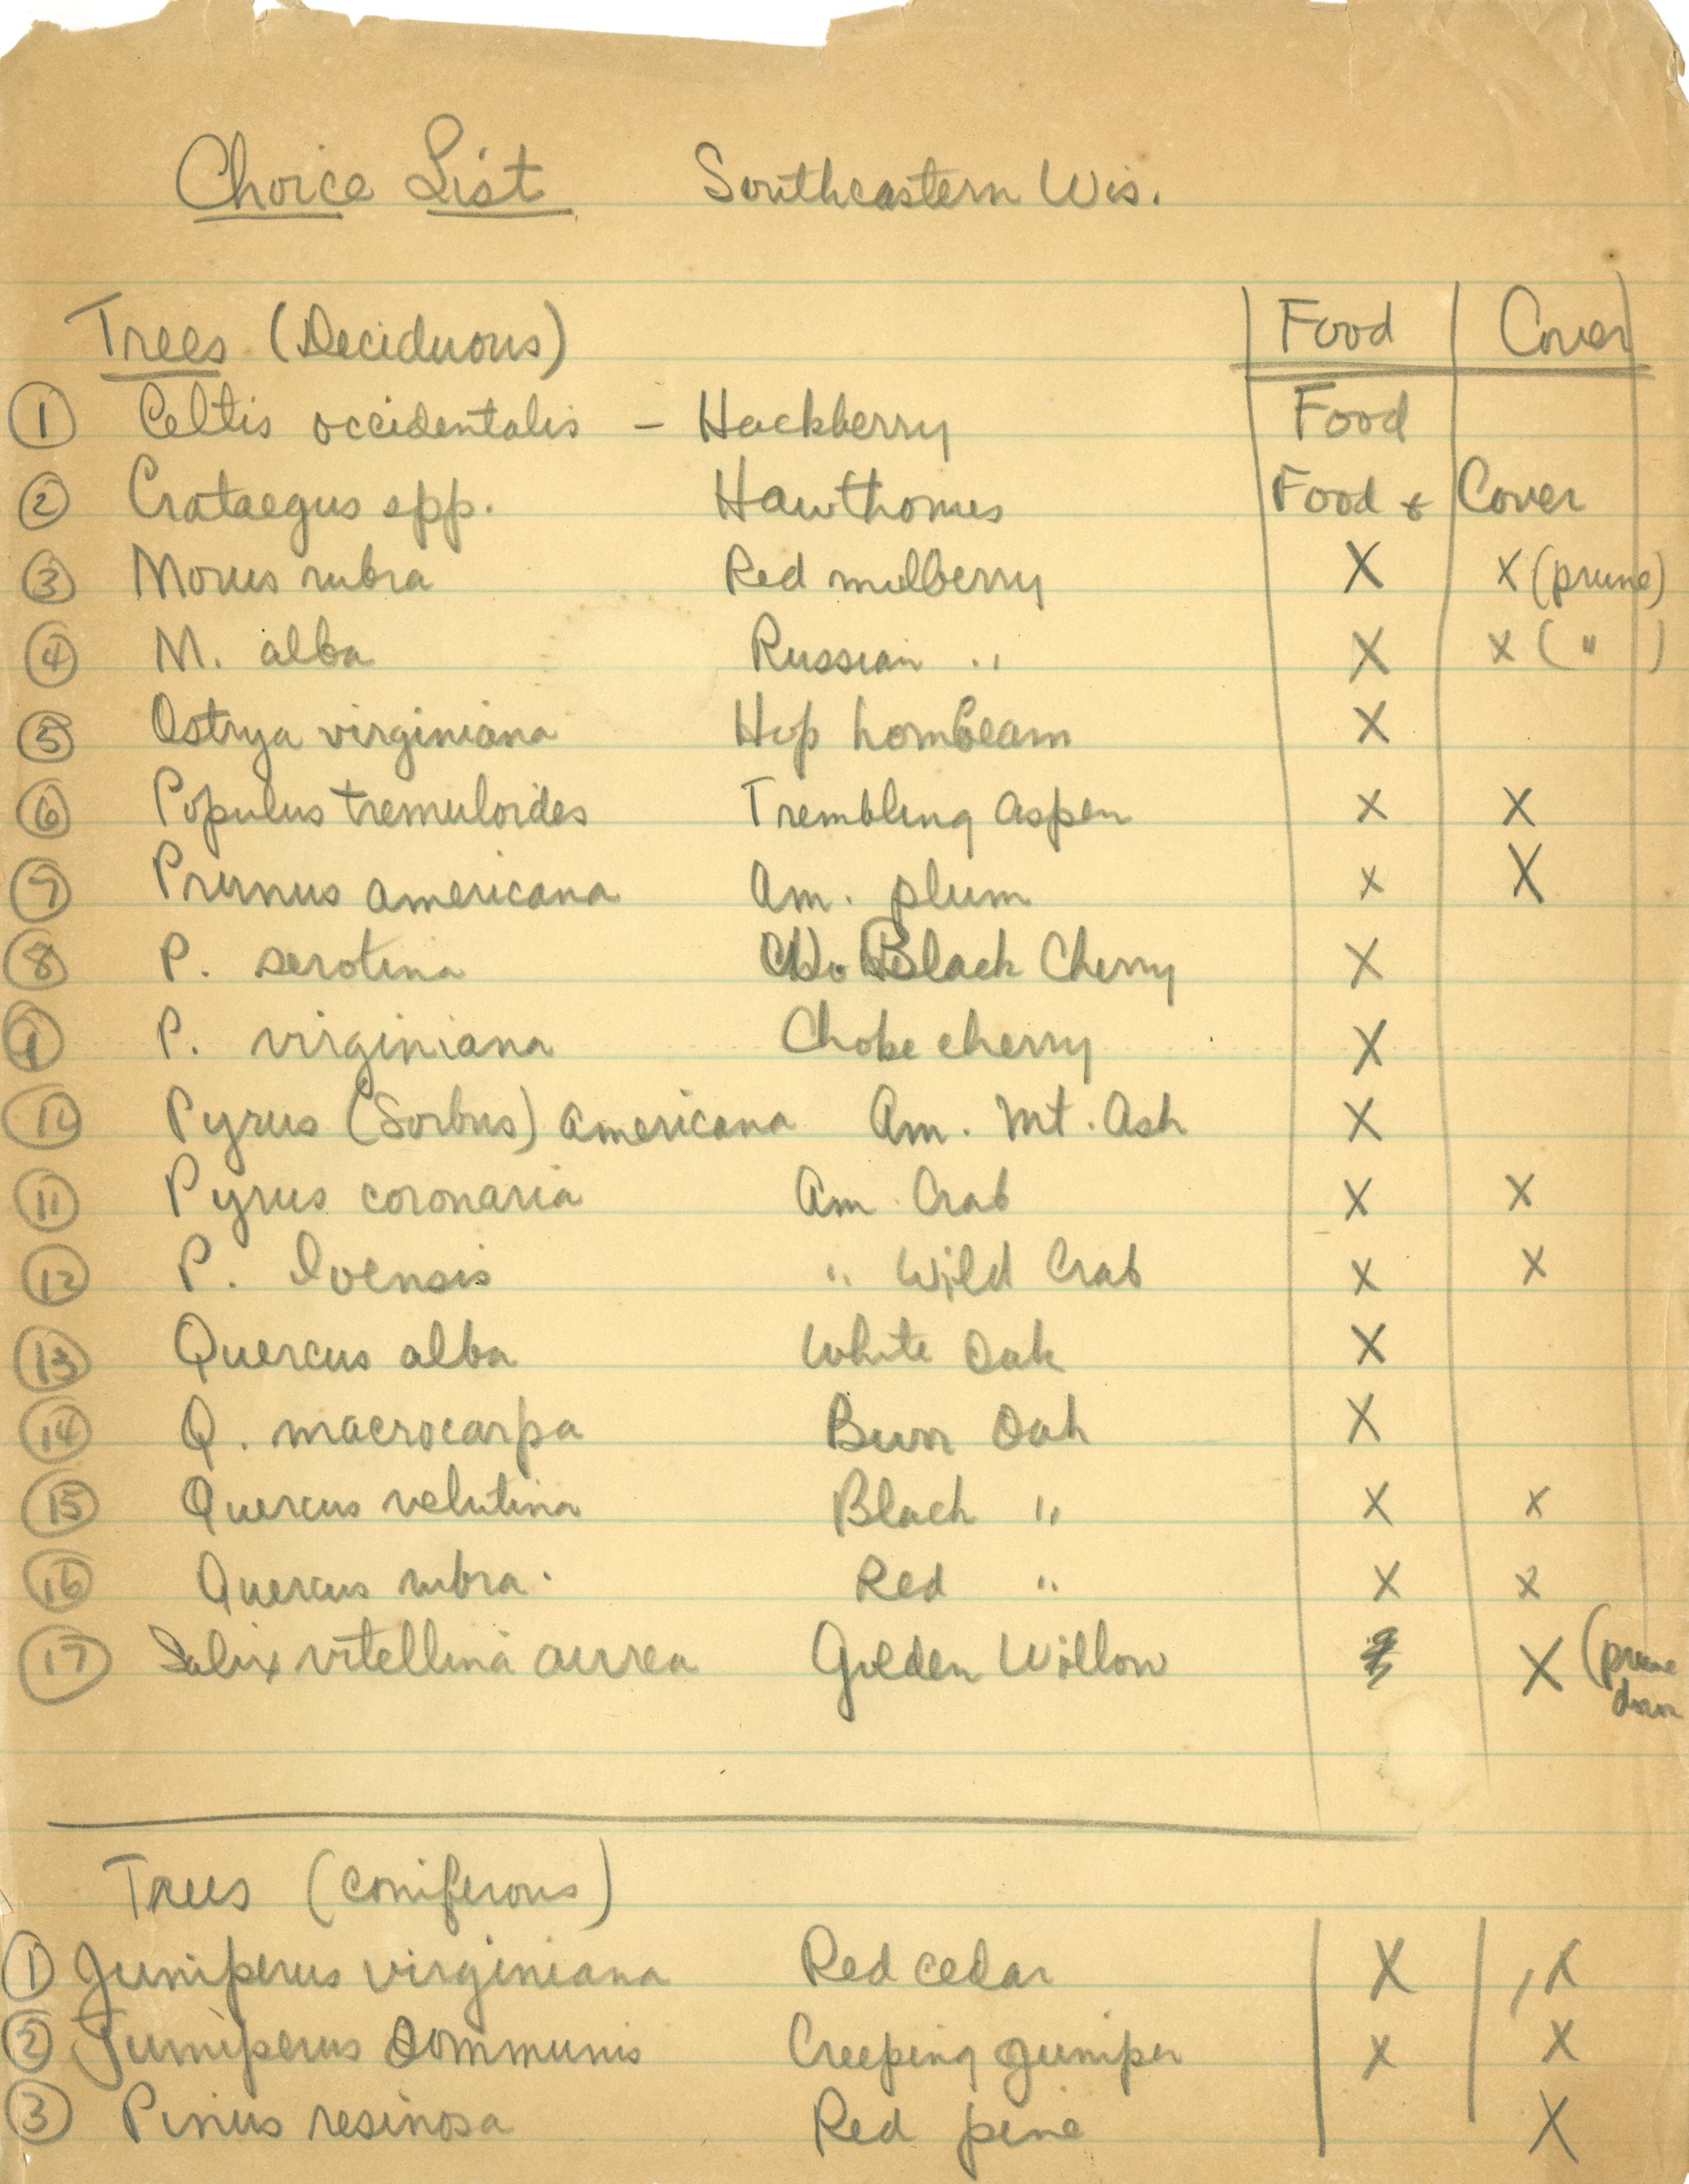 Choice List Southeastern Wis.
Trees (Deciduous) Food Cover
1 Celtis occidentalis - Hackberry Food
2 Crataegus spp. Hawthornes Food & Cover
3 Morus rubra Red mulberry X X (prune)
4 M. alba Russian " X X ( " )
5 Ostrya virginiana Hop hornbeam X
6 Populus tremuloides Trembling aspen X X
7 Prunus americana Am. plum X X
8 P. serotina Black Cherry X
9 P. virginiana Choke cherry X
10 Pyrus (Sorbus) americana Am. Mt. Ash X
11 Pyrus coronaria Am. Crab X X
12 P. Ioensis " Wild Crab X X
13 Quercus alba White Oak X
14 Q. macrocarpa Burr Oak X
15 Quercus velutina Black " X X
16 Quercus rubra. Red " X X
17 Salix vitellina aurea Golden Willow X (prune
down
Trees (coniferous)
1 Juniperus virginiana Red cedar X X
2 Juniperus communis Creeping juniper X X
3 Pinus resinosa Red pine X